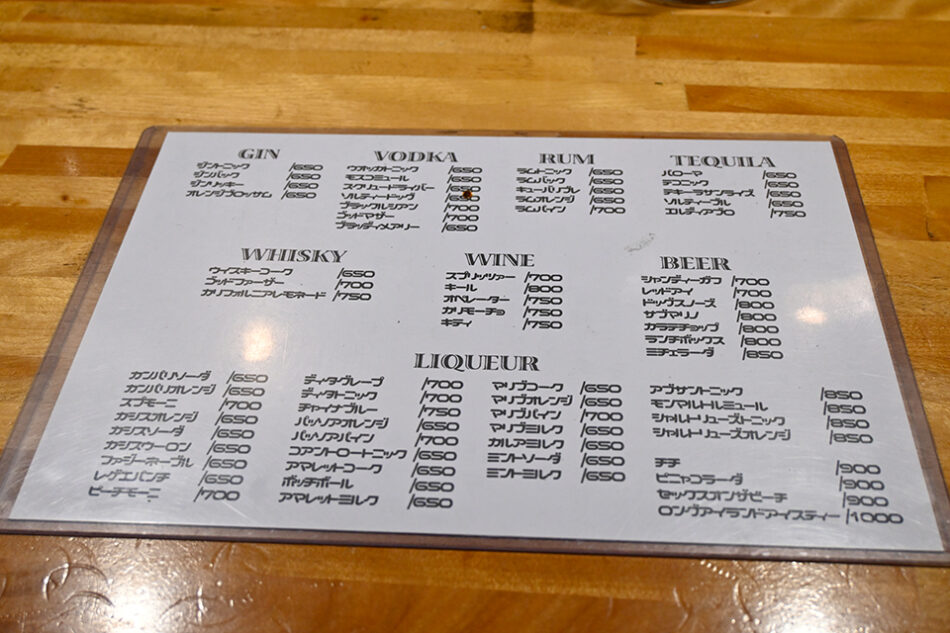 GIN
ジントニック /650
ジンバック /650
ジンリッキー /650
オレンジブロッサム /650
VODKA
ウォッカトニック /650
モスコミュール /650
スクリュードライバー /650
ソルティードッグ /650
ブラックルシアン /700
ゴッドマザー /700
ブラッディメアリー /650
RUM
ラムトニック /650
ラムバック /650
キューバリブレ /650
ラムオレンジ /650
ラムパイン /700
TEQUILA
パローマ /650
テコニック /650
テキーラサンライズ /650
ソルティーブル /650
エルディアブロ /750
WHISKY
ウイスキーコーク /650
ゴッドファーザー /700
カリフォルニアレモネード /750
WINE
スプリッツァー /700
キール /800
オペレーター /750
カリモーチョ /750
キティ /750
BEER
シャンディーガフ /700
レッドアイ /700
ドッグスノーズ /800
サブマリノ /800
カラテチョップ /800
ランチボックス /800
ミチェラーダ /850
LIQUEUR
カンパリソーダ /650
カンパリオレンジ /650
スプモーニ /700
カシスオレンジ /650
カシスソーダ /650
カシスウーロン /650
ファジーネーブル /650
レゲエパンチ /650
ピーチモーニ /700
ディタグレープ /700
ディタトニック /700
チャイナブルー /750
パッソアオレンジ /650
パッソアパイン /700
コアントロートニック /650
アマレットコーク /650
ボッチボール /650
アマレットミルク /650
マリブコーク /650
マリブオレンジ /650
マリブパイン /700
マリブミルク /650
カルアミルク /650
ミントソーダ /650
ミントミルク /650
アブサントニック /850
モンマルトルミュール /850
シャルトリューズトニック /850
シャルトリューズオレンジ /850
チチ /900
ピニャコラーダ /900
セックスオンザビーチ /900
ロングアイランドアイスティー /1000